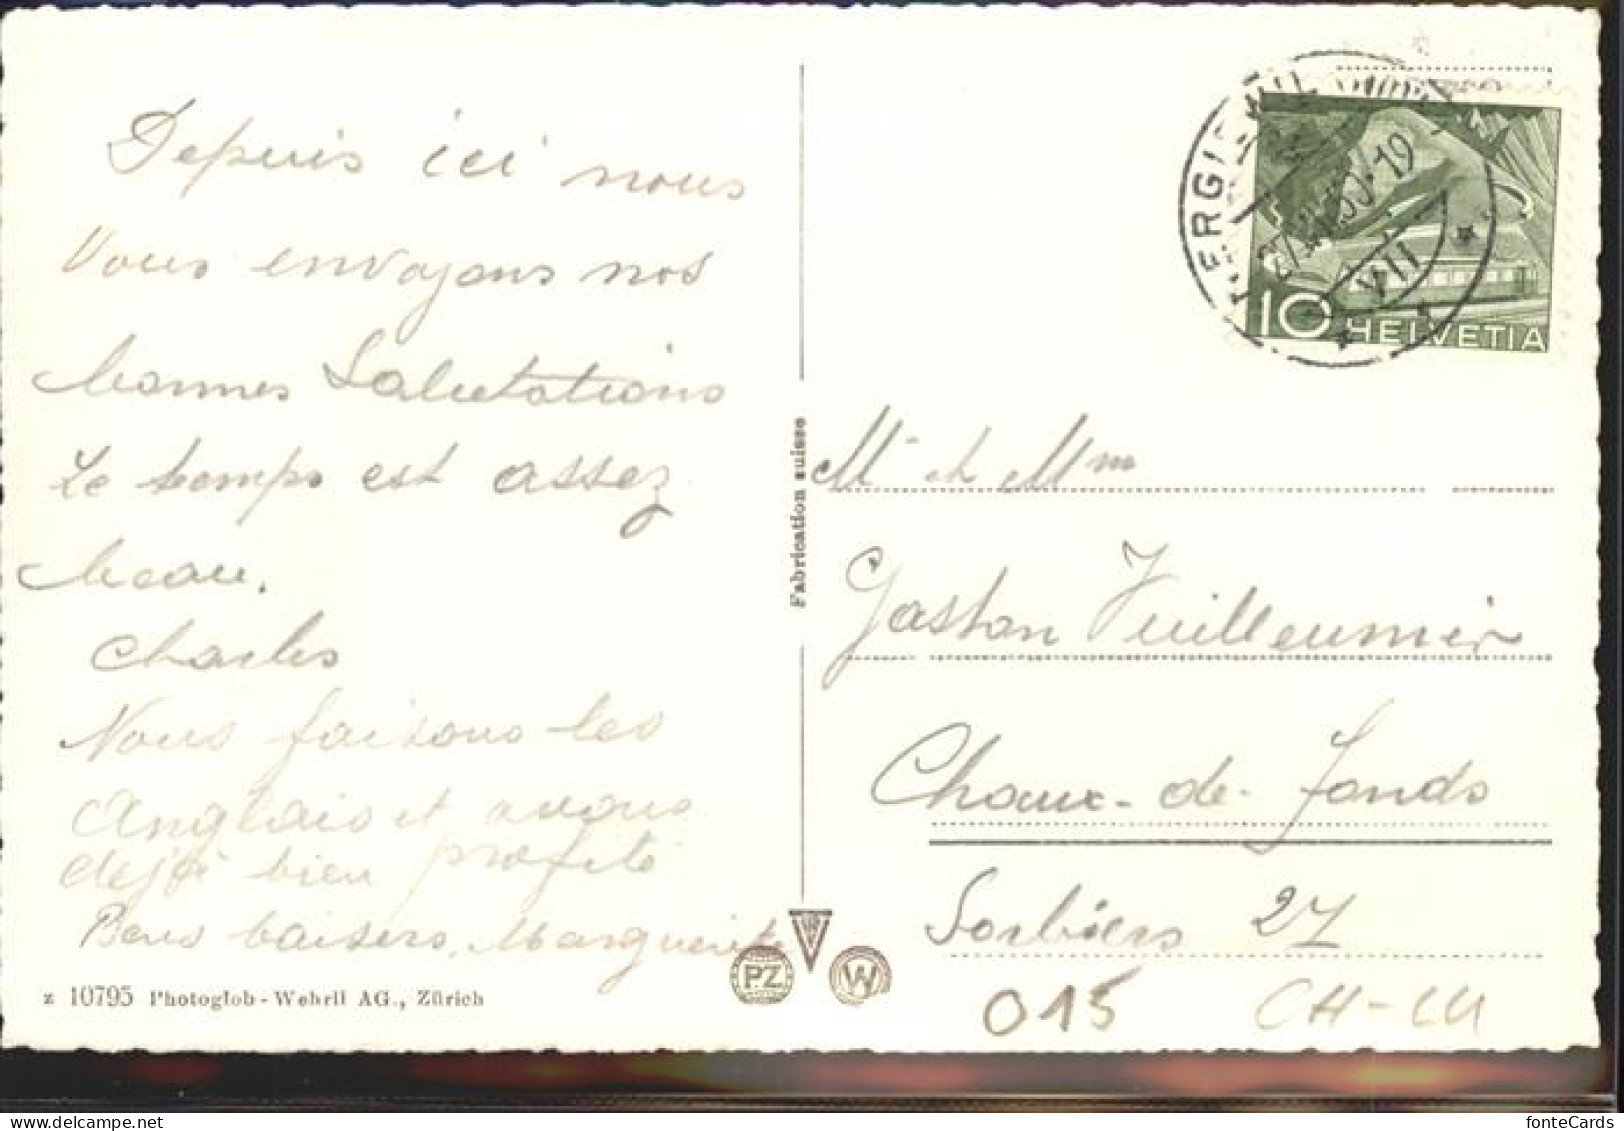 Depuis ici nous
Vous envoyons nos
bonnes Salutations
Le temps est assez
beau.
Charles
Nous faisons les
Anglais et avons
déjà bien profité
Bons baisers, Marguerite
z 10795 Photoglob-Wehrli AG., Zürich
Fabrication suisse
PZ
W
27. 50-19
VII
10 HELVETIA
Mr et Mme
Gaston Vuilleumier
Chaux-de-Fonds
Sorbiers 27
015 CH-LU
fonteCards